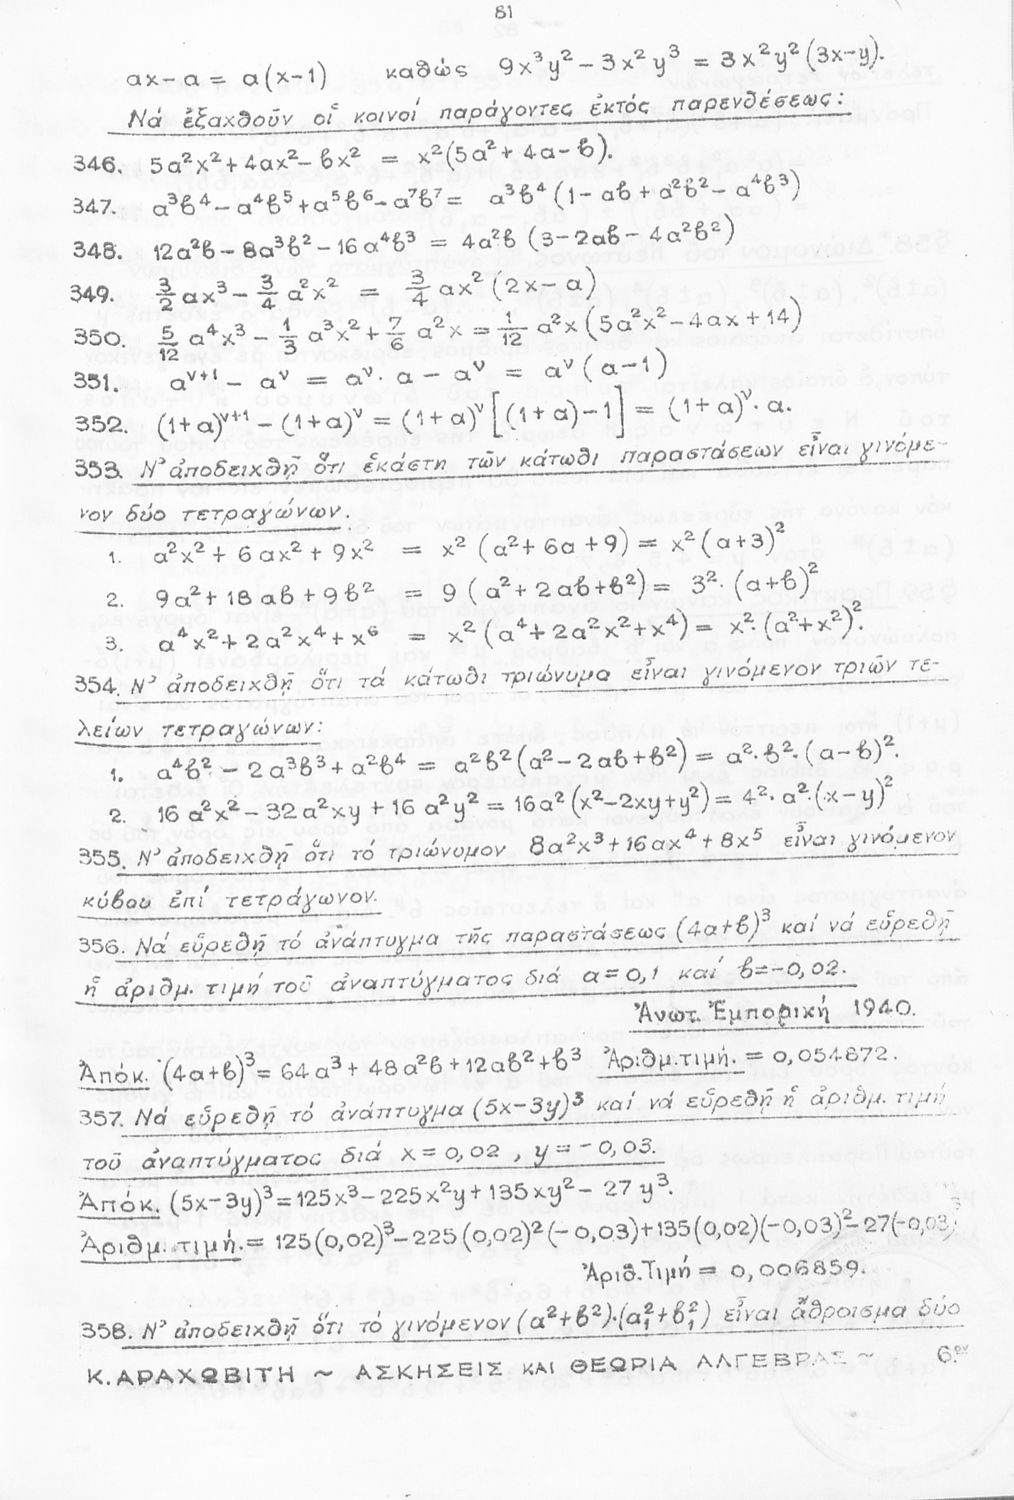 81
αx-α = α(x-1) καθώς 9x³y² - 3x²y³ = 3x²y²(3x-y).
Νά ἐξαχθοῦν οἱ κοινοί παράγοντες ἐκτός παρενθέσεως:
346. 5α²x² + 4αx² - βx² = x²(5α² + 4α - β).
347. α³β⁴ - α⁴β⁵ + α⁵β⁶ - α⁷β⁷ = α³β⁴(1 - αβ + α²β² - α⁴β³)
348. 12α²β - 8α³β² - 16α⁴β³ = 4α²β (3 - 2αβ - 4α²β²)
349. 3/2 αx³ - 3/4 α²x² = 3/4 αx² (2x - α)
350. 5/12 α⁴x³ - 1/3 α³x² + 7/6 α²x = 1/12 α²x (5α²x² - 4αx + 14)
351. αᵛ⁺¹ - αᵛ = αᵛ · α - αᵛ = αᵛ (α - 1)
352. (1+α)ᵛ⁺¹ - (1+α)ᵛ = (1+α)ᵛ [(1+α) - 1] = (1+α)ᵛ · α.
353. Ν' ἀποδειχθῇ ὅτι ἑκάστη τῶν κάτωθι παραστάσεων εἶναι γινόμε-
νον δύο τετραγώνων.
1. α²x² + 6αx² + 9x² = x² (α² + 6α + 9) = x² (α+3)²
2. 9α² + 18αβ + 9β² = 9 (α² + 2αβ + β²) = 3² · (α+β)²
3. α⁴x² + 2α²x⁴ + x⁶ = x² (α⁴ + 2α²x² + x⁴) = x² · (α² + x²)².
354. Ν' ἀποδειχθῇ ὅτι τά κάτωθι τριώνυμα εἶναι γινόμενον τριῶν τε-
λείων τετραγώνων:
1. α⁴β² - 2α³β³ + α²β⁴ = α²β² (α² - 2αβ + β²) = α² · β² · (α-β)².
2. 16α²x² - 32α²xy + 16α²y² = 16α² (x² - 2xy + y²) = 4² · α² · (x-y)²
355. Ν' ἀποδειχθῇ ὅτι τό τριώνυμον 8α²x³ + 16αx⁴ + 8x⁵ εἶναι γινόμενον
κύβου ἐπί τετράγωνον.
356. Νά εὑρεθῇ τό ἀνάπτυγμα τῆς παραστάσεως (4α+β)³ καί νά εὑρεθῇ
ἡ ἀριθμ. τιμή τοῦ ἀναπτύγματος διά α = 0,1 καί β = -0,02.
Ἀνωτ. Ἐμπορική 1940.
Ἀπόκ. (4α+β)³ = 64α³ + 48α²β + 12αβ² + β³ Ἀριθμ. τιμή. = 0,054872.
357. Νά εὑρεθῇ τό ἀνάπτυγμα (5x-3y)³ καί νά εὑρεθῇ ἡ ἀριθμ. τιμή
τοῦ ἀναπτύγματος διά x = 0,02, y = -0,03.
Ἀπόκ. (5x-3y)³ = 125x³ - 225x²y + 135xy² - 27y³.
Ἀριθμ. τιμή. = 125(0,02)³ - 225(0,02)²(-0,03) + 135(0,02)(-0,03)² - 27(-0,03)³
Ἀριθ. Τιμή = 0,006859.
358. Ν' ἀποδειχθῇ ὅτι τό γινόμενον (α²+β²)·(α₁²+β₁²) εἶναι ἄθροισμα δύο
Κ. ΑΡΑΧΩΒΙΤΗ ~ ΑΣΚΗΣΕΙΣ ΚΑΙ ΘΕΩΡΙΑ ΑΛΓΕΒΡΑΣ ~ 6.ον